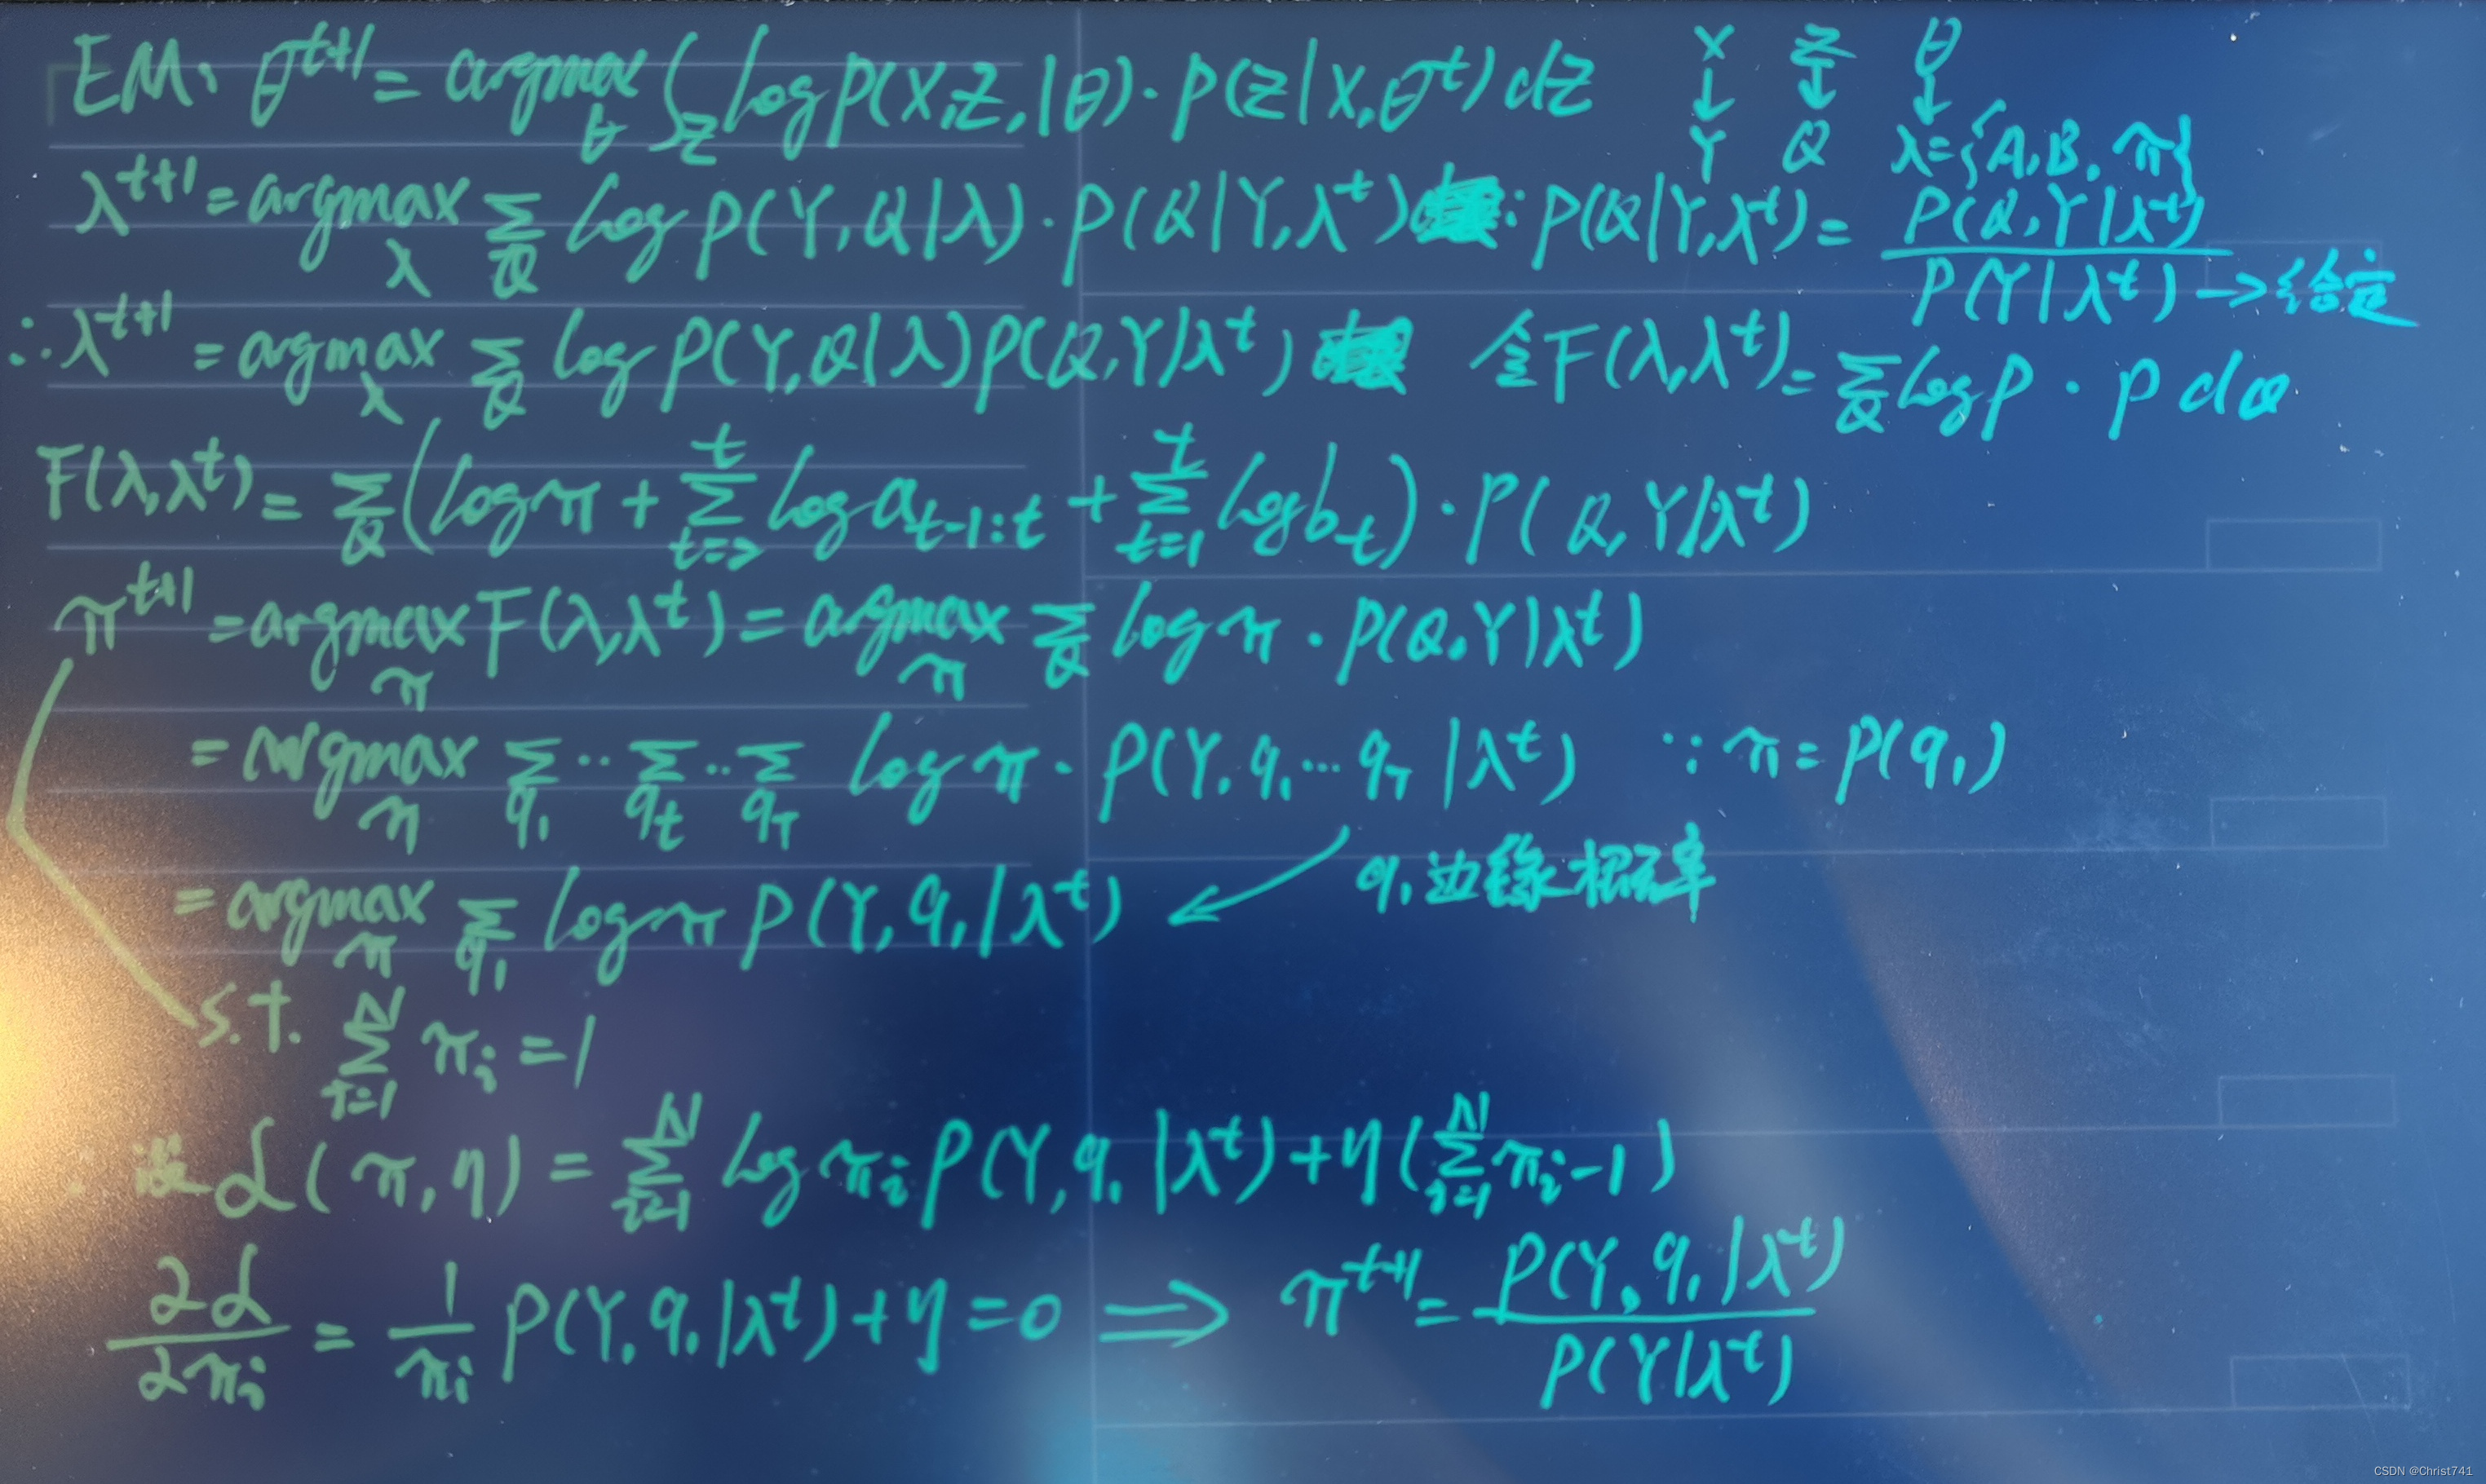 EM: θ^{t+1} = argmax_θ ∫_Z log P(X,Z,|θ)·P(Z|X,θ^t) dZ X Z θ
↓ ↓ ↓
Y Q λ={A,B,π}
λ^{t+1} = argmax_λ Σ_Q log P(Y,Q|λ)·P(Q|Y,λ^t) ∵ P(Q|Y,λ^t) = P(Q,Y|λ^t) / P(Y|λ^t) → 给定
∴ λ^{t+1} = argmax_λ Σ_Q log P(Y,Q|λ)P(Q,Y|λ^t) 令F(λ,λ^t) = Σ_Q log P · P dQ
F(λ,λ^t) = Σ_Q (log π + Σ_{t=2}^t log a_{t-1:t} + Σ_{t=1}^t log b_t)·P(Q,Y|λ^t)
π^{t+1} = argmax_π F(λ,λ^t) = argmax_π Σ_Q log π · P(Q,Y|λ^t)
= argmax_π Σ_{q_1} ·· Σ_{q_t} ·· Σ_{q_T} log π · P(Y,q_1…q_T|λ^t) ∵ π = P(q_1)
= argmax_π Σ_{q_1} log π P(Y,q_1|λ^t) ← q_1边缘概率
s.t. Σ_{i=1}^N π_i = 1
设 L(π,η) = Σ_{i=1}^N log π_i P(Y,q_1|λ^t) + η(Σ_{i=1}^N π_i - 1)
∂L/∂π_i = 1/π_i P(Y,q_1|λ^t) + η = 0 ⟹ π^{t+1} = P(Y,q_1|λ^t) / P(Y|λ^t)
CSDN @Christ741